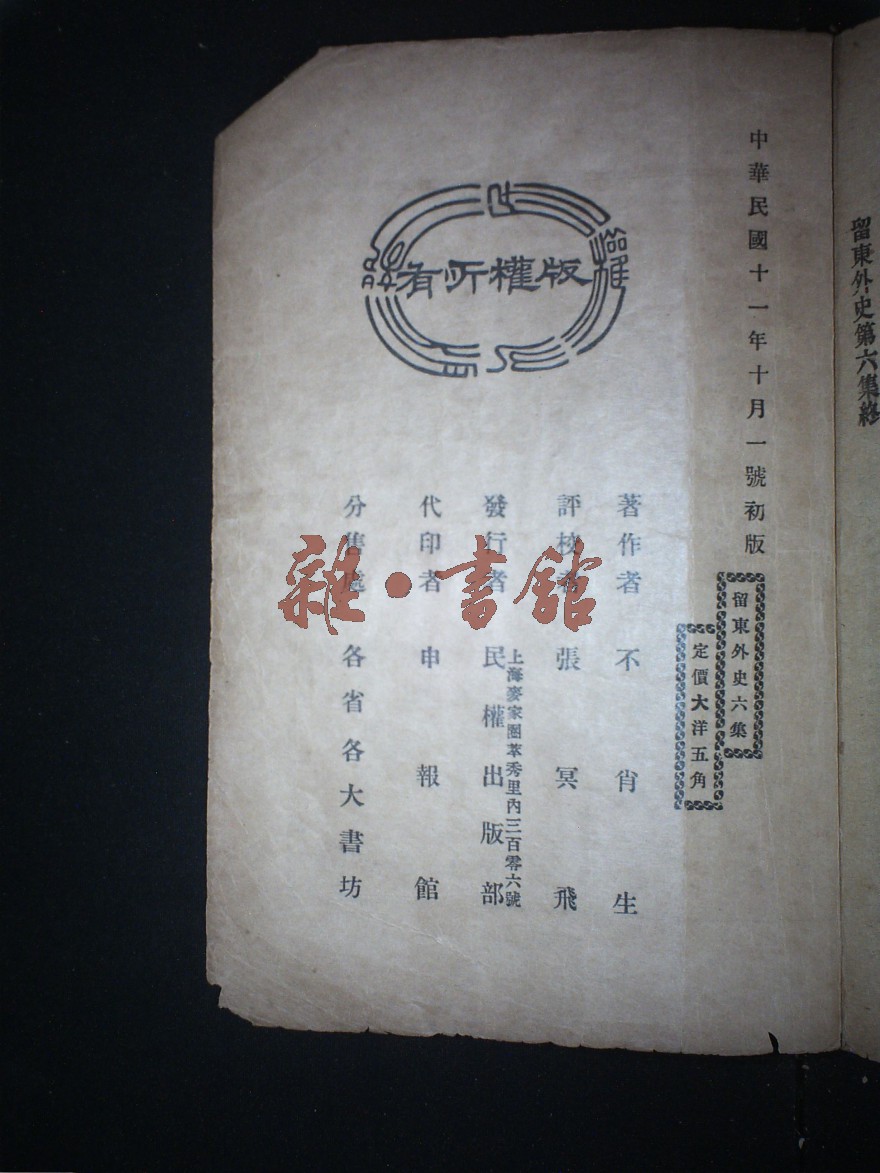 留東外史第六集終
中華民國十一年十月一號初版
留東外史六集
定價大洋五角
版權所有
著作者 不肖生
評校者 張冥飛
上海麥家圈萃秀里內三百零六號
發行者 民權出版部
代印者 申報館
分售處 各省各大書坊
雜·書館